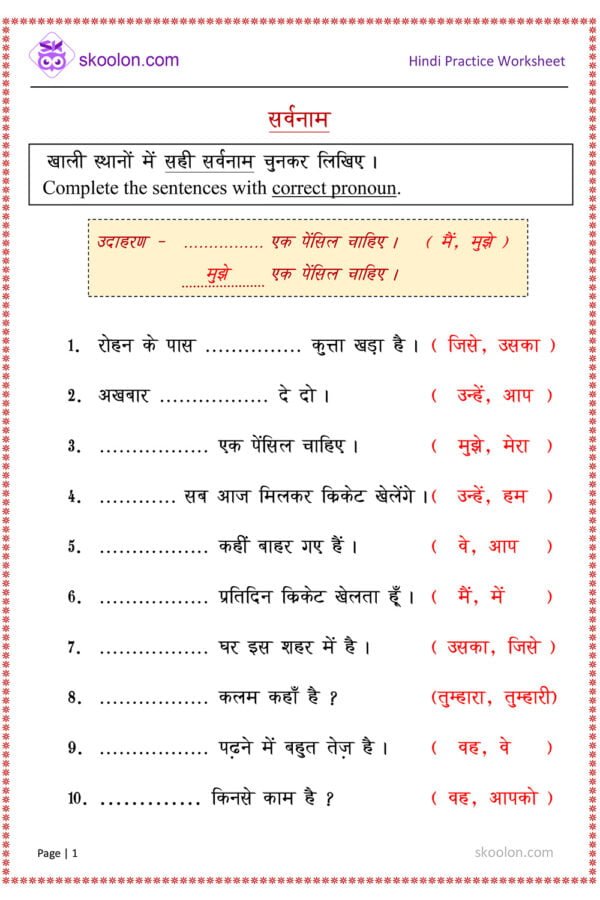 SK
skoolon.com
Hindi Practice Worksheet
सर्वनाम
खाली स्थानों में सही सर्वनाम चुनकर लिखिए ।
Complete the sentences with correct pronoun.
उदाहरण - ................ एक पेंसिल चाहिए । ( मैं, मुझे )
मुझे एक पेंसिल चाहिए ।
1. रोहन के पास ............... कुत्ता खड़ा है । ( जिसे, उसका )
2. अखबार ................. दे दो । ( उन्हें, आप )
3. ................. एक पेंसिल चाहिए । ( मुझे, मेरा )
4. ............ सब आज मिलकर क्रिकेट खेलेंगे । ( उन्हें, हम )
5. ................. कहीं बाहर गए हैं । ( वे, आप )
6. ................. प्रतिदिन क्रिकेट खेलता हूँ । ( मैं, में )
7. ................. घर इस शहर में है । ( उसका, जिसे )
8. ................. कलम कहाँ है ? (तुम्हारा, तुम्हारी)
9. ................. पढ़ने में बहुत तेज़ है । ( वह, वे )
10. .............. किनसे काम है ? ( वह, आपको )
Page | 1
skoolon.com